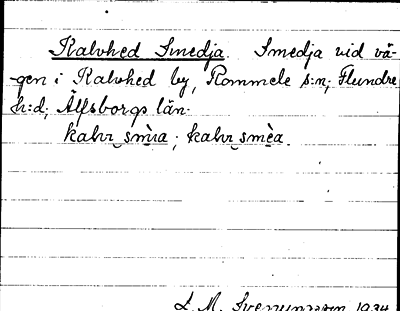 Kalvhed Smedja. Smedja vid vä-
gen i Kalvhed by, Rommele s:n, Flundre
h:d, Älfsborgs län.
kahv smìa ; kahv smèa.
1934